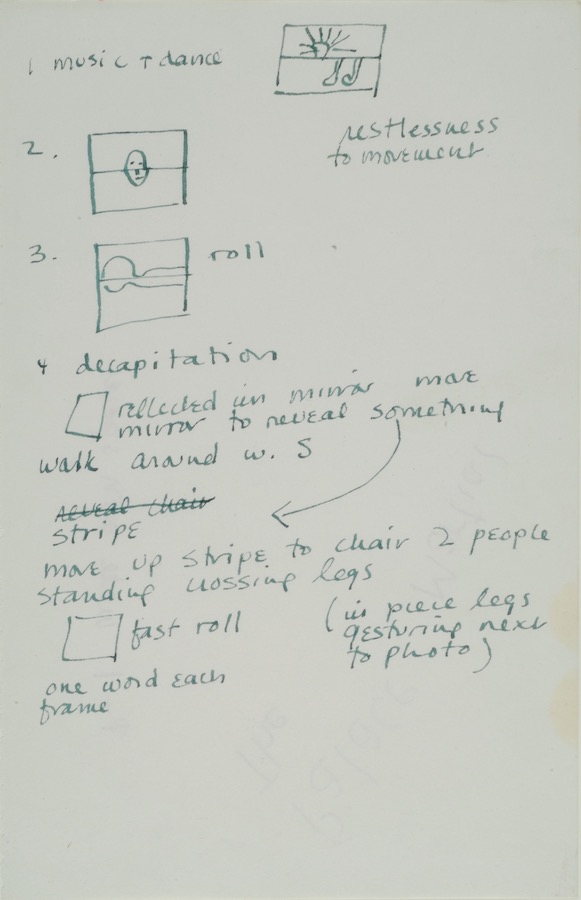 1 music + dance
restlessness
to movement
2.
3.
roll
4 decapitation
reflected in mirror move
mirror to reveal something
walk around w. S
reveal chair
stripe
move up stripe to chair 2 people
standing crossing legs
fast roll
(in piece legs
gesturing next
to photo)
one word each
frame